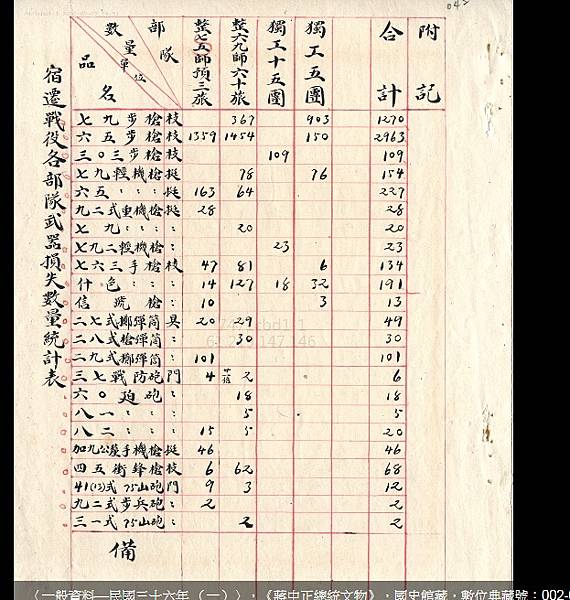 宿遷戰役各部隊武器損失數量統計表
部隊 數量 單位 品名 整七五師預三旅 整六九師六十旅 獨工十五團 獨工五團 合計 附記
七九步槍 枝 367 903 1270
六五步槍 枝 1359 1454 150 2963
三〇三步槍 枝 109 109
七九輕機槍 挺 78 76 154
六五〃〃〃 挺 163 64 227
九二式重機槍 挺 28 28
七九〃〃〃 〃 20 20
七九二輕機槍 〃 23 23
七六三手槍 枝 47 81 6 134
什色〃〃 〃 14 127 18 32 191
信號槍 〃 10 3 13
二七式擲彈筒 具 20 29 49
二八式槍彈筒 〃 30 30
二九式擲彈筒 〃 101 101
三七戰防砲 門 4 2 6
六〇迫砲 〃 18 18
八一〃〃 〃 5 5
八二〃〃 〃 15 5 20
加九公厘手機槍 挺 46 46
四五衝鋒槍 枝 6 62 68
41(13)式75山砲 門 9 3 12
九二式步兵砲 〃 2 2
三一式75山砲 〃 2 2
備
〈一般資料—民國三十六年(一)〉,《蔣中正總統文物》,國史館藏,數位典藏號:002-0